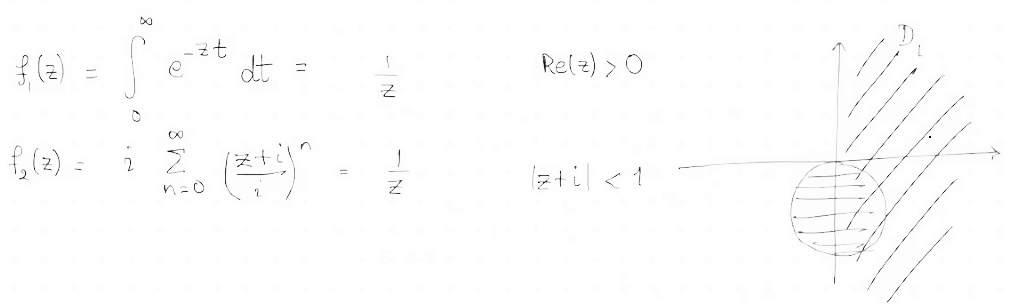 f₁(z) = ∫₀^∞ e^{-zt} dt = 1/z Re(z) > 0
D₁
f₂(z) = i ∑_{n=0}^∞ ((z+i)/i)ⁿ = 1/z |z+i| < 1